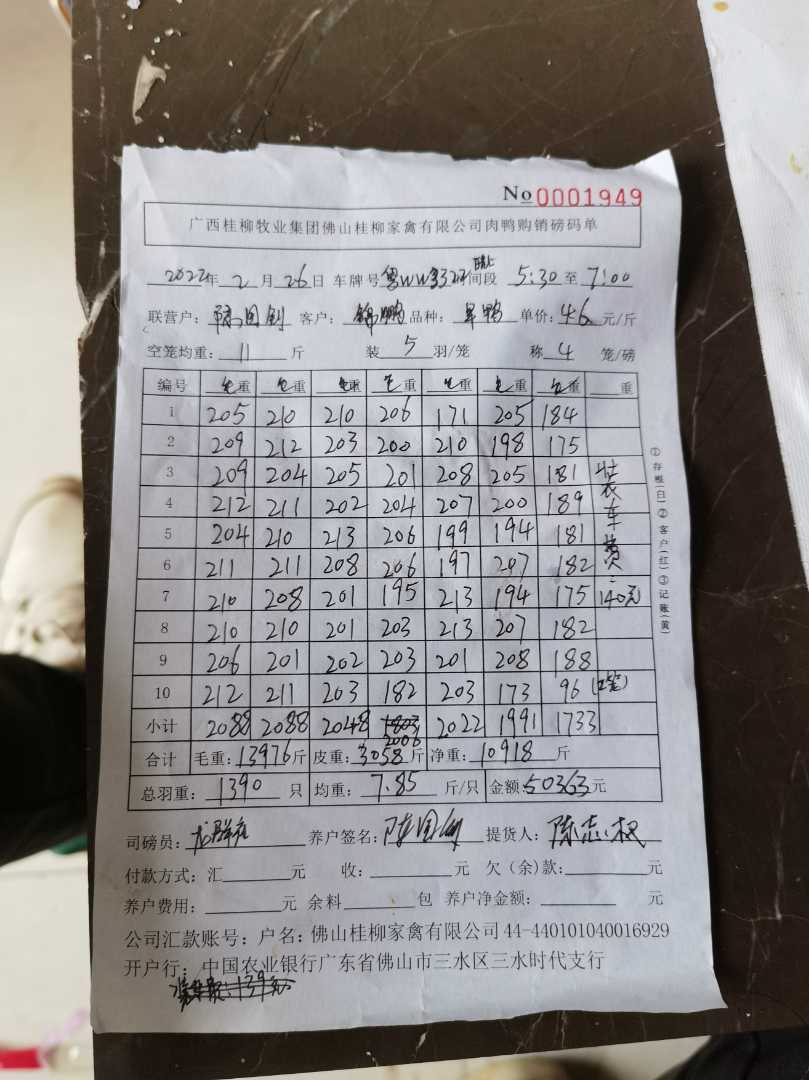 No 0001949
广西桂柳牧业集团佛山桂柳家禽有限公司肉鸭购销磅码单
2022年 2 月 26日 车牌号 粤WW332 时间段 5:30 至 7:00
联营户: 客户: 锦鹏 品种: 单价: 4.6 元/斤
空笼均重: 11 斤 装 5 羽/笼 称 4 笼/磅
编号 毛重 毛重 毛重 毛重 毛重 毛重 毛重 重
1 205 210 210 206 171 205 184
2 209 212 203 200 210 198 175
3 209 204 205 201 208 205 181 装
4 212 211 202 204 207 200 189 车
5 204 210 213 206 199 194 181 费
6 211 211 208 206 197 207 182 :
7 210 208 201 195 213 194 175 140元
8 210 210 201 203 213 207 182
9 206 201 202 203 201 208 188
10 212 211 203 182 203 173 96 (2笼)
小计 2088 2088 2048 2006 2022 1991 1733
合计 毛重: 13976 斤 皮重: 3058 斤 净重: 10918 斤
总羽重: 1390 只 均重: 7.85 斤/只 金额: 50363 元
司磅员: 养户签名: 提货人: 陈志权
付款方式: 汇 元 收: 元 欠(余)款: 元
养户费用: 元 余料 包 养户净金额: 元
公司汇款账号: 户名: 佛山桂柳家禽有限公司 44-440101040016929
开户行: 中国农业银行广东省佛山市三水区三水时代支行
①存根(白)②客户(红)③记账(黄)